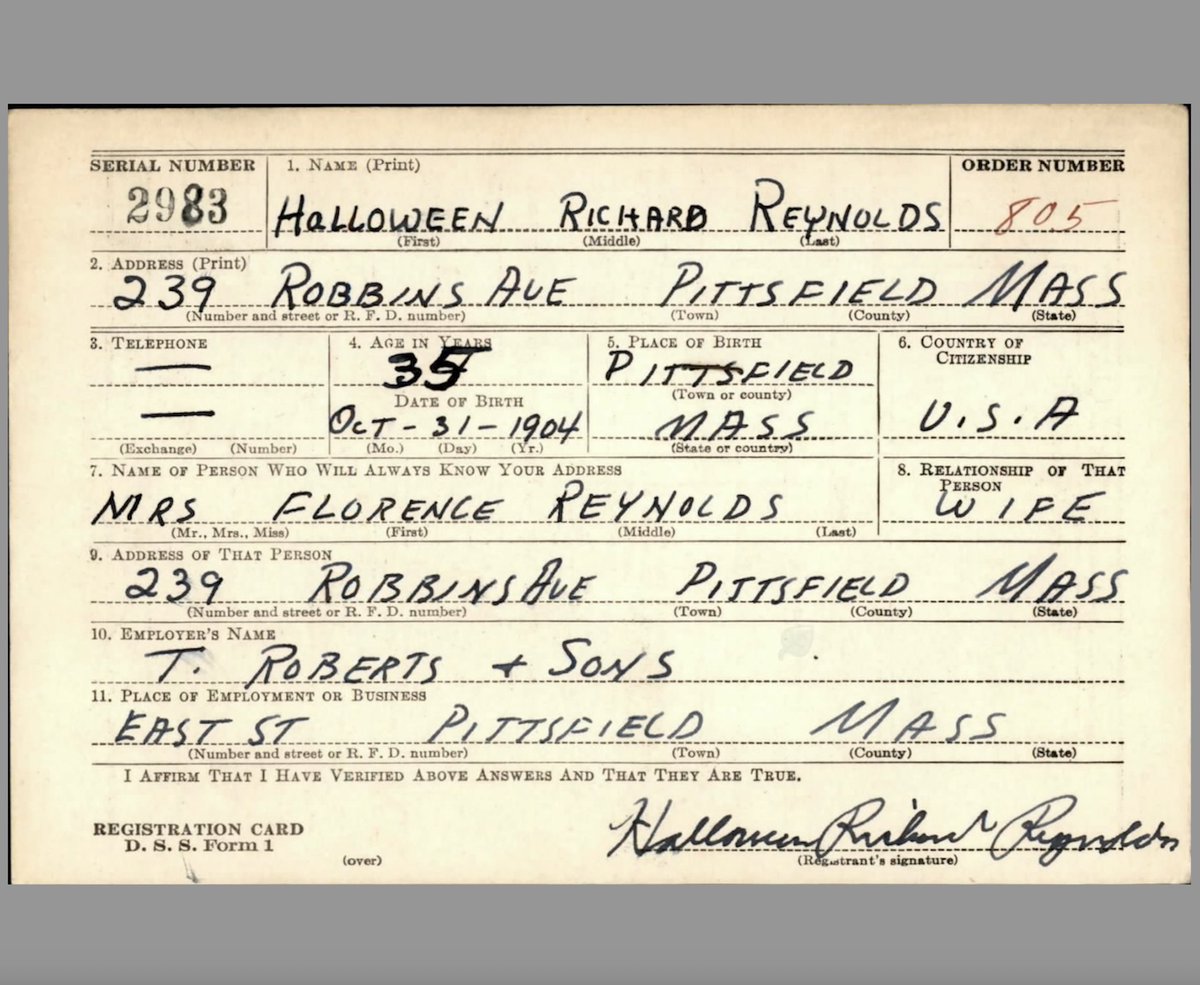 SERIAL NUMBER 1. NAME (Print) ORDER NUMBER
2983 HaLLOWEEN RICHARD REYNOLDS 805
(First) (Middle) (Last)
2. ADDRESS (Print)
239 ROBBINS AVE PITTSFIELD MASS
(Number and street or R. F. D. number) (Town) (County) (State)
3. TELEPHONE 4. AGE IN YEARS 5. PLACE OF BIRTH 6. COUNTRY OF CITIZENSHIP
— 35 PITTSFIELD
DATE OF BIRTH (Town or county)
— OCT - 31 - 1904 MASS U.S.A
(Exchange) (Number) (Mo.) (Day) (Yr.) (State or country)
7. NAME OF PERSON WHO WILL ALWAYS KNOW YOUR ADDRESS 8. RELATIONSHIP OF THAT PERSON
MRS FLORENCE REYNOLDS WIFE
(Mr., Mrs., Miss) (First) (Middle) (Last)
9. ADDRESS OF THAT PERSON
239 ROBBINS AVE PITTSFIELD MASS
(Number and street or R. F. D. number) (Town) (County) (State)
10. EMPLOYER'S NAME
T. ROBERTS + SONS
11. PLACE OF EMPLOYMENT OR BUSINESS
EAST ST PITTSFIELD MASS
(Number and street or R. F. D. number) (Town) (County) (State)
I AFFIRM THAT I HAVE VERIFIED ABOVE ANSWERS AND THAT THEY ARE TRUE.
REGISTRATION CARD Halloween Richard Reynolds
D. S. S. Form 1 (over) (Registrant's signature)